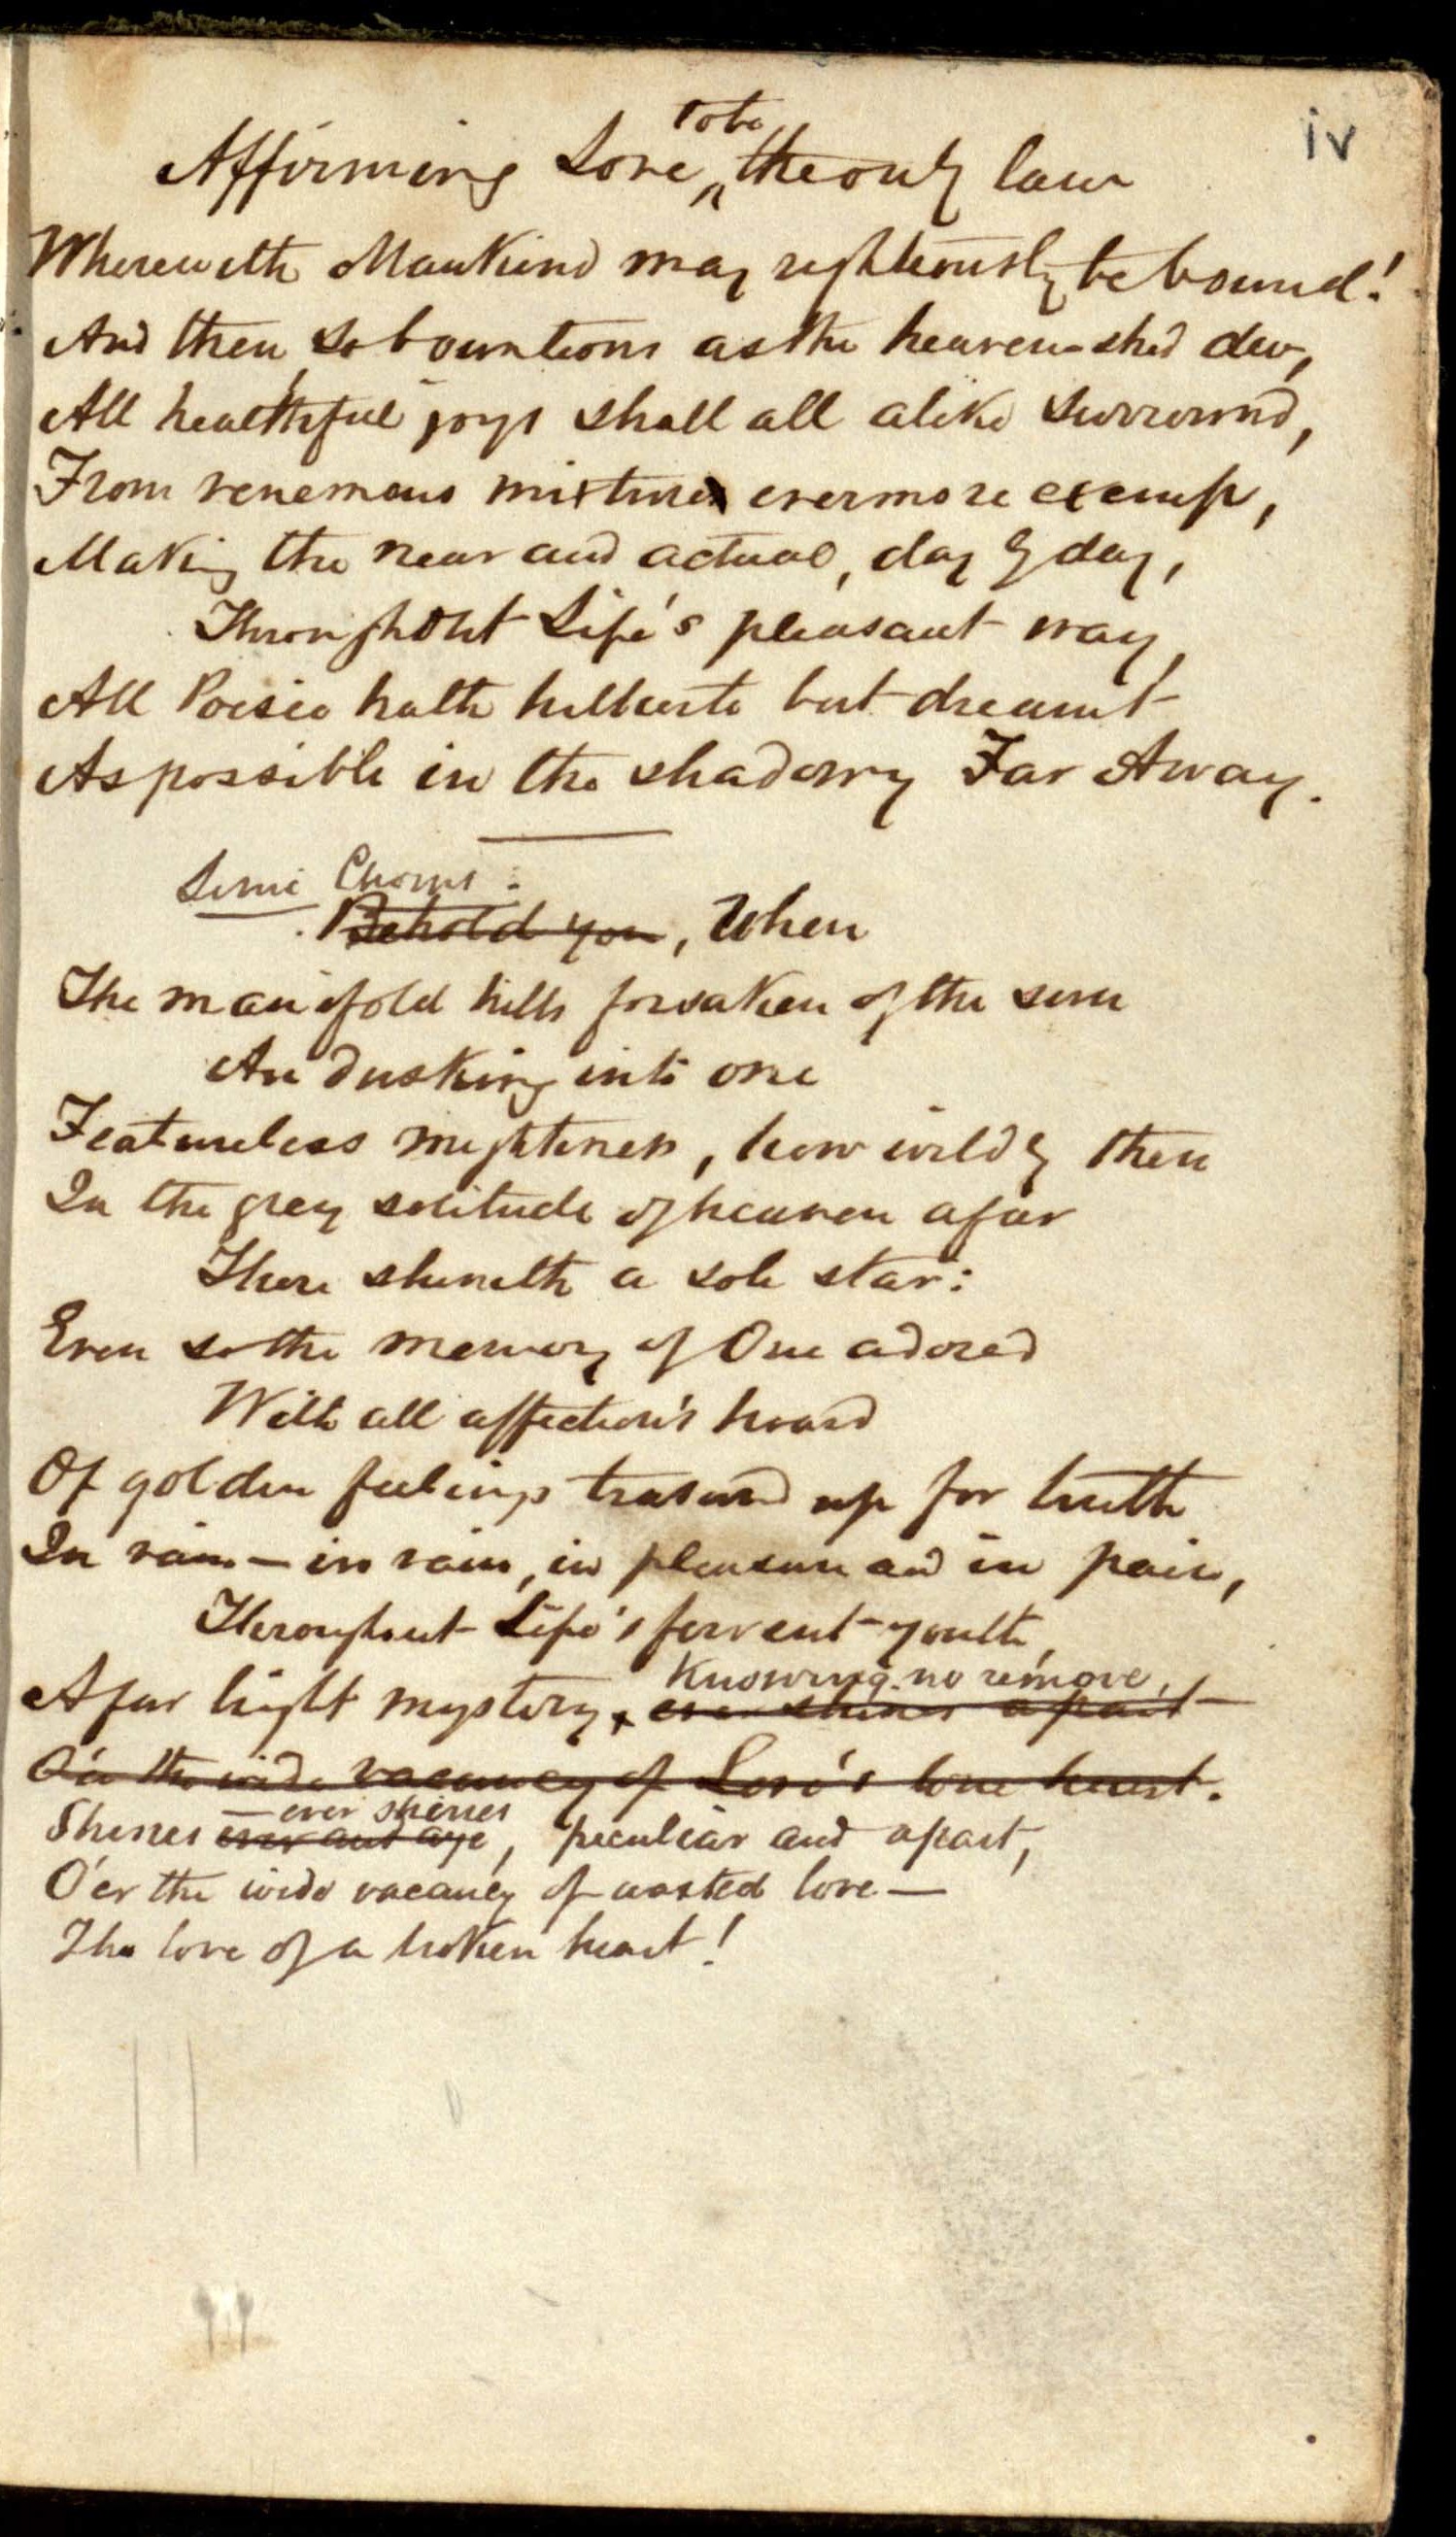 iv
to be
Affirming Love ^ the only law
Wherewith Mankind may righteously be bound!
And then, so bounteous as the heaven-shed dew,
All healthful joys shall all alike surround,
From venemous mixture evermore exempt,
Making the near and actual, day by day,
Throughout Life's pleasant way,
All Poesie hath hitherto but dreamt
As possible in the shadowy Far Away.
Semi Chorus:
Behold you, When
The manifold hills forsaken of the sun
Are dusking into one
Featureless mightiness, how wildly then
In the grey solitude of heaven afar
There shineth a sole star:
Even so the memory of One adored
With all affection's hoard
Of golden feelings treasured up for truth
In vain – in vain, in pleasure and in pain,
Throughout Life's fervent youth,
Knowing no remove,
A far light mystery, ever shines apart –
O'er the wide vacancy of Love's lone heart.
– ever shines
Shines ever and aye, peculiar and apart,
O'er the wide vacancy of wasted love —
The love of a broken heart!